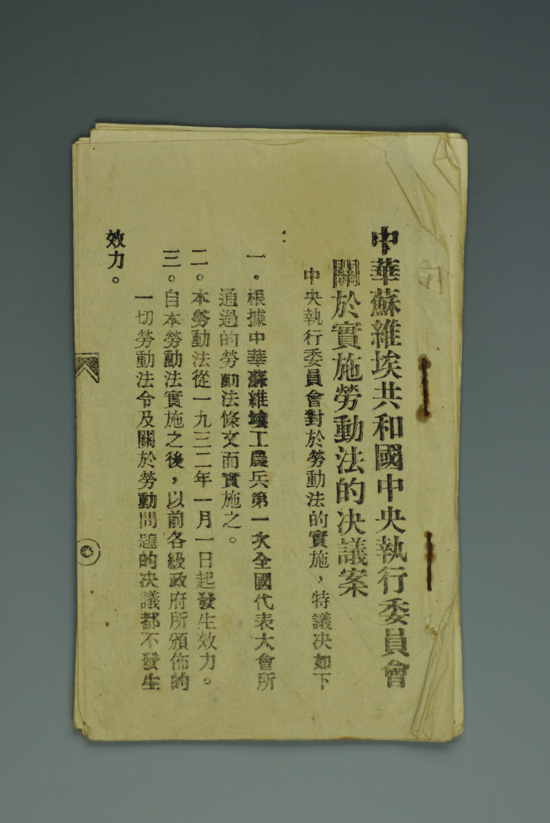 中華蘇維埃共和國中央執行委員會
關於實施勞動法的决議案
中央執行委員會對於勞動法的實施，特議决如下
一。根據中華蘇維埃工農兵第一次全國代表大會所
通過的勞動法條文而實施之。
二。本勞動法從一九三二年一月一日起發生效力。
三。自本勞動法實施之後，以前各級政府所頒佈的
一切勞動法令及關於勞動問題的决議都不發生
效力。